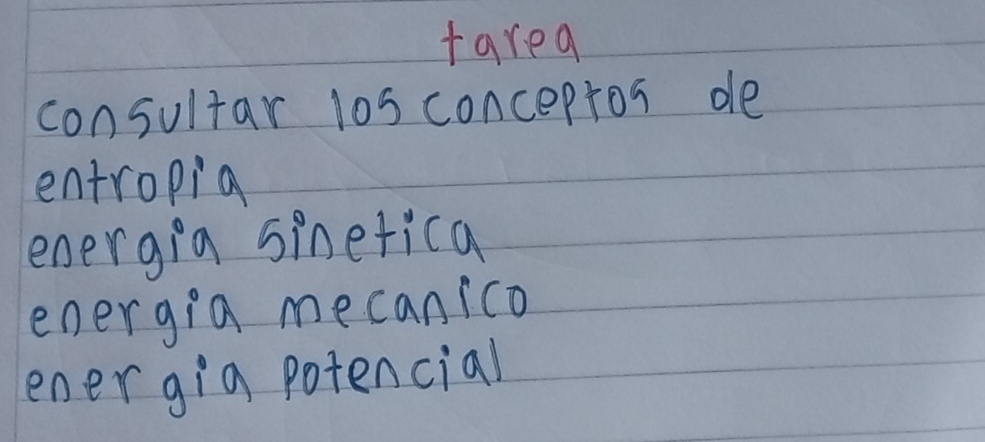 tarea
consultar los conceptos de
entropia
energia sinetica
energia mecanico
energia potencial